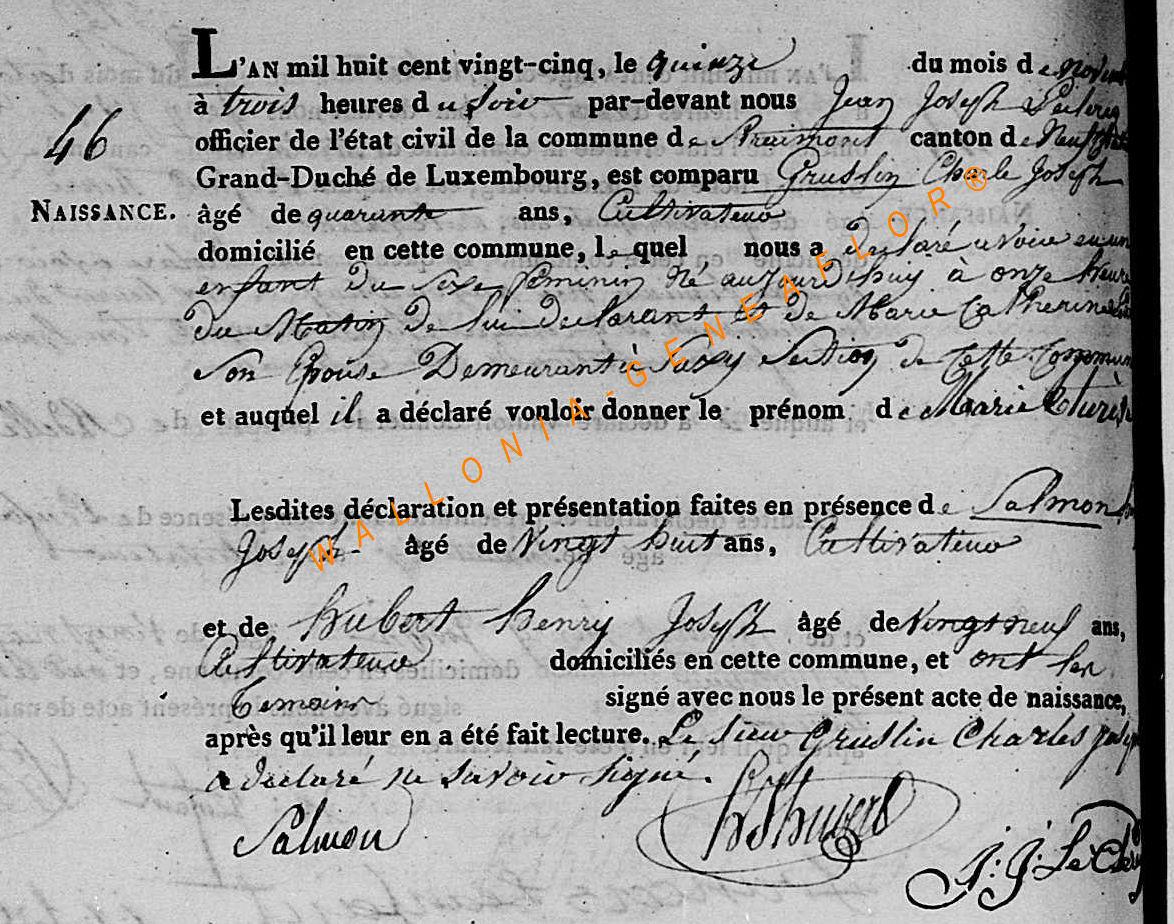 L'AN mil huit cent vingt-cinq, le quinze du mois de
à trois heures du soir par-devant nous Jean Joseph
officier de l'état civil de la commune de Straimont canton de
46
Grand-Duché de Luxembourg, est comparu Gruslin Charle Joseph
NAISSANCE. âgé de quarante ans, Cultivateur
domicilié en cette commune, lequel nous a declaré avoir eu un
enfant du sexe feminin Né aujourdhuy à onze heure
du Matin de lui declarant et de Marie Catherine
son Epouse Demeurant à Section de Cette Commun
et auquel il a déclaré vouloir donner le prénom de Marie
Lesdites déclaration et présentation faites en présence de Salmon
Joseph âgé de Vingt huit ans, Cultivateur
et de hubert henry Joseph âgé de Vingt neuf ans,
Cultivateur domiciliés en cette commune, et ont les
Temoins signé avec nous le présent acte de naissance,
après qu'il leur en a été fait lecture. Le sieur Gruslin Charles
a declaré ne savoir signé.
Salmon
J: J: Le
WALLONIA-GENEAFLOR®